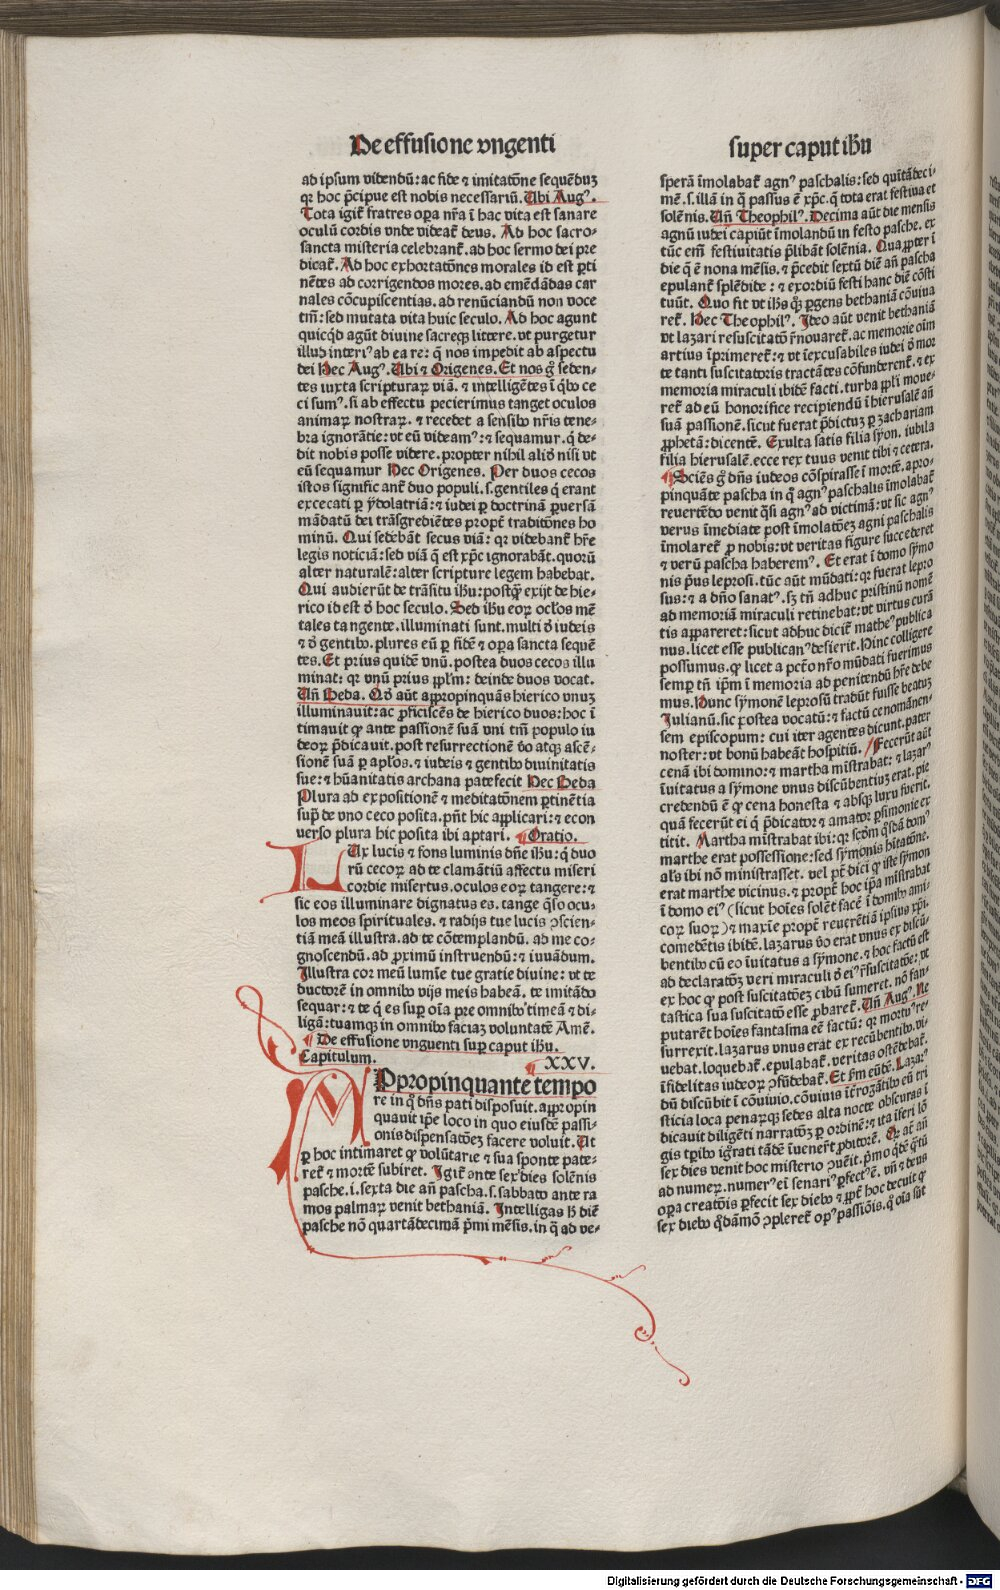 De effusione vngenti
ad ipsum videndū: ac fide ⁊ imitatōne sequēduꝫ
qꝛ hoc p̄cipue est nobis necessariū. Ubi Augꝰ.
Tota igit᷑ fratres oꝑa nr̄a ī hac vita est sanare
oculū cordis vnde videat᷑ deus. Ad hoc sacro-
sancta misteria celebrant᷑. ad hoc sermo dei pre
dicat᷑. Ad hoc exhortatōnes morales id est ꝑti
nētes ad corrigendos mores. ad emēdādas car
nales cōcupiscentias. ad renūciandū non voce
tm̄: sed mutata vita huic seculo. Ad hoc agunt
quicqd agūt diuine sacreqꝫ littere. vt purgetur
illud interiꝰ ab ea re: q̄ nos impedit ab aspectu
dei Hec Augꝰ. Ubi ⁊ Origenes. Et nos gͦ seden-
tes iuxta scripturaꝝ viā. ⁊ intelligētes ī qbꝰ ce
ci sumꝰ. si ab effectu pecierimus tanget oculos
animaꝝ nostraꝝ. ⁊ recedet a sensibꝰ nr̄is tene-
bra ignorātie: vt eū videamꝰ: ⁊ sequamur. q̄ de-
dit nobis posse videre. propter nihil aliō nisi vt
eū sequamur Hec Origenes. Per duos cecos
istos significant᷑ duo populi. s. gentiles q̄ erant
excecati ꝑ ydolatriā: ⁊ iudei ꝑ doctrinā ꝑuersā
mādatū dei trāsgrediētes propt᷑ traditōnes ho
minū. Qui sedebāt secus viā: qꝛ videbant᷑ hr̄e
legis noticiā: sed viā q̄ est xp̄c ignorabāt. quoꝝ
alter naturalē: alter scripture legem habebat.
Qui audierūt de trāsitu ihū: postqꝫ exijt de hie-
rico id est ð hoc seculo. Sed ihū eoꝝ ocl̄os mē
tales tangente. illuminati sunt. multi ð iudeis
⁊ ð gentibꝰ. plures eū ꝑ fidē ⁊ oꝑa sancta sequē
tes. Et prius quidē vnū. postea duos cecos illu
minat: qꝛ vnū prius ppl̄m: deinde duos vocat.
Uñ Beda. Qð aūt appropinquās hierico vnuꝫ
illuminauit: ac ꝓficiscēs de hierico duos: hoc ī
timauit ꝙ ante passionē suā vni tm̄ populo iu
deoꝝ p̄dicauit. post resurrectionē ꝟo atqꝫ ascē-
sionē suā ꝑ apl̄os. ⁊ iudeis ⁊ gentibꝰ diuinitatis
sue: ⁊ hūanitatis archana patefecit Hec Beda
Plura ad expositionē ⁊ meditatōnem ꝑtinētia
supͣ de vno ceco posita. pn̄t hic applicari: ⁊ econ
uerso plura hic posita ibi aptari. ¶ Oratio.
LUx lucis ⁊ fons luminis dn̄e ihū: q̄ duo
rū cecoꝝ ad te clamātiū affectu miseri
cordie misertus. oculos eoꝝ tangere: ⁊
sic eos illuminare dignatus es. tange qͦso ocu-
los meos spirituales. ⁊ radijs tue lucis ↄscien-
tiā meā illustra. ad te cōtemplandū. ad me co-
gnoscendū. ad ꝓximū instruendū: ⁊ iuuādum.
Illustra cor meū lumīe tue gratie diuine: vt te
ductorē in omnibꝰ vijs meis habeā. te imitādo
sequar: ⁊ te q̄ es suꝑ oīa pre omnibꝰ timeā ⁊ di-
ligā: tuamqꝫ in omnibꝰ faciaꝫ voluntatē Amē.
¶ De effusione vnguenti suꝑ caput ihū.
Capitulum. ¶ XXV.
APpropinquante tempo
re in qͦ dn̄s pati disposuit. appropin
quauit ip̄e loco in quo eiusdē passi-
onis dispensatōeꝫ facere voluit. Ut
ꝑ hoc intimaret ꝙ volūtarie ⁊ sua sponte pate-
ret᷑ ⁊ mortē subiret. Igit᷑ ante sex dies solēnis
pasche. i. sexta die añ pascha. s. sabbato ante ra
mos palmaꝝ venit bethaniā. Intelligas h̄ diē
pasche nō quartādecimā pͥmi mēsis. in qͣ ad ve-
super caput ihū
sperā īmolabat᷑ agnꝰ paschalis: sed quītādeci-
mē. s. illā in q̄ passus ē xp̄c. q̄ tota erat festiua et
solēnis. Uñ Theophilꝰ. Decima aūt die mensis
agnū iudei capiūt īmolandū in festo pasche. ex
tūc em̄ festiuitatis p̄libāt solēnia. Quapropter ī
die q̄ ē nona mēsis. ⁊ p̄cedit sextū diē añ pascha
epulant᷑ splēdide: ⁊ exordiū festi hanc diē cōsti
tuūt. Quo fit vt ihūs qͥꝫ ꝑgens bethaniā cōuiua
ret᷑. Hec Theophilꝰ. Ideo aūt venit bethaniā
vt lazari resuscitatō r̄nouaret᷑. ac memorie oīm
artius īprimeret᷑: ⁊ vt īexcusabiles iudei ð mor
te tanti suscitatoris tractātes cōfunderent᷑. ⁊ ex
memoria miraculi ibidē facti. turba ppl̄i moue-
ret᷑ ad eū honorifice recipiendū ī hierusalē añ
suā passionē. sicut fuerat p̄dictuꝫ ꝑ zachariam
ꝓphetā: dicentē. Exulta satis filia syon. iubila
filia hierusalē. ecce rex tuus venit tibi ⁊ cetera.
¶ Sciēs gͦ dn̄s iudeos cōspirasse ī mortē. apro-
pinquāte pascha in qͦ agnꝰ paschalis īmolabat᷑
reuertēdo venit qͣsi agnꝰ ad victimā: vt sic agnꝰ
verus īmediate post īmolatōeꝫ agni paschalis
īmolaret᷑ ꝓ nobis: vt veritas figure succederet
⁊ verū pascha haberemꝰ. Et erat ī domo symo
nis pͥus leprosi. tūc aūt mūdati: qꝛ fuerat lepro
sus: ⁊ a dn̄o sanatꝰ. sꝫ tn̄ adhuc pristinū nomē
ad memoriā miraculi retinebat: vt virtus curā
tis appareret: sicut adhuc dicit᷑ matheꝰ publica
nus. licet esse publicanꝰ desierit. Hinc colligere
possumus. ꝙ licet a pctō nr̄o mūdati fuerimus
semꝑ tn̄ ip̄m ī memoria ad penitendū hr̄e debe
mus. Hunc symonē leprosū tradūt fuisse beatuꝫ
Julianū. sic postea vocatū: ⁊ factū cenomānen-
sem episcopum: cui iter agentes dicunt. pater
noster: vt bonū habeāt hospitiū. ¶ Fecerūt aūt
cenā ibi domino: ⁊ martha mīstrabat: ⁊ lazarꝰ
īuitatus a symone vnus discūbentiuꝫ erat. pie
credendū ē ꝙ cena honesta ⁊ absqꝫ luxu fuerit.
quā fecerūt ei q̄ p̄dicatoꝛ ⁊ amatoꝛ ꝑsimonie ex
titit. Martha mīstrabat ibi: qꝛ scðm qͦsdā domꝰ
marthe erat possessione: sed symonis hītatōne.
al̄s ibi nō ministrasset. vel pt̄ dici ꝙ iste symon
erat marthe vicinus. ⁊ propt᷑ hoc ip̄a mīstrabat
ī domo eiꝰ (sicut hoīes solēt facē ī domibꝰ ami-
coꝝ suoꝝ) ⁊ maxīe propt᷑ reuerētiā ipsius xp̄i.
comedētis ibidē. lazarus ꝟo erat vnus ex discū-
bentibꝰ cū eo īuitatus a symone. ⁊ hoc factū est
ad declaratōꝫ veri miraculi ð eiꝰ r̄suscitatōe: vt
ex hoc ꝙ post suscitatōeꝫ cibū sumeret. nō fan-
tastica sua suscitatō esse ꝓbaret᷑. Uñ Augꝰ. Ne
putarēt hoīes fantasma eē factū: qꝛ mortuꝰ re-
surrexit. lazarus vnus erat ex recūbentibꝰ. vi-
uebat. loquebat᷑. epulabat᷑. veritas ostēdebat᷑.
īfidelitas iudeoꝝ ↄfūdebat᷑. Et fm eūdē. Lazarꝰ
dū discūbit ī cōuiuio. cōuiuis īt᷑rogātibꝰ eū tri
sticia loca penaꝝqꝫ sedes alta nocte obscuras ī
dicauit diligēti narratōꝫ ꝑ ordinē: ⁊ ita īferi lō
gis tꝑibꝰ ignrati tādē īuenerūt ꝓditorē. Qꝛ at᷑ añ
sex dies venit hoc misterio ↄuēit. pͥmo qͥdē qͣtū
ad numeꝝ. numerꝰ eī senariꝰ ꝑfectꝰ ē. vñ ⁊ deus
oꝑa creatōis ꝑfecit sex diebꝰ ⁊ ꝓpt᷑ hoc decuit ꝙ
sex diebꝰ qͦdāmō ↄpleret᷑ opꝰ passiōis. qͦ oīa sūt
Digitalisierung gefördert durch die Deutsche Forschungsgemeinschaft - DFG